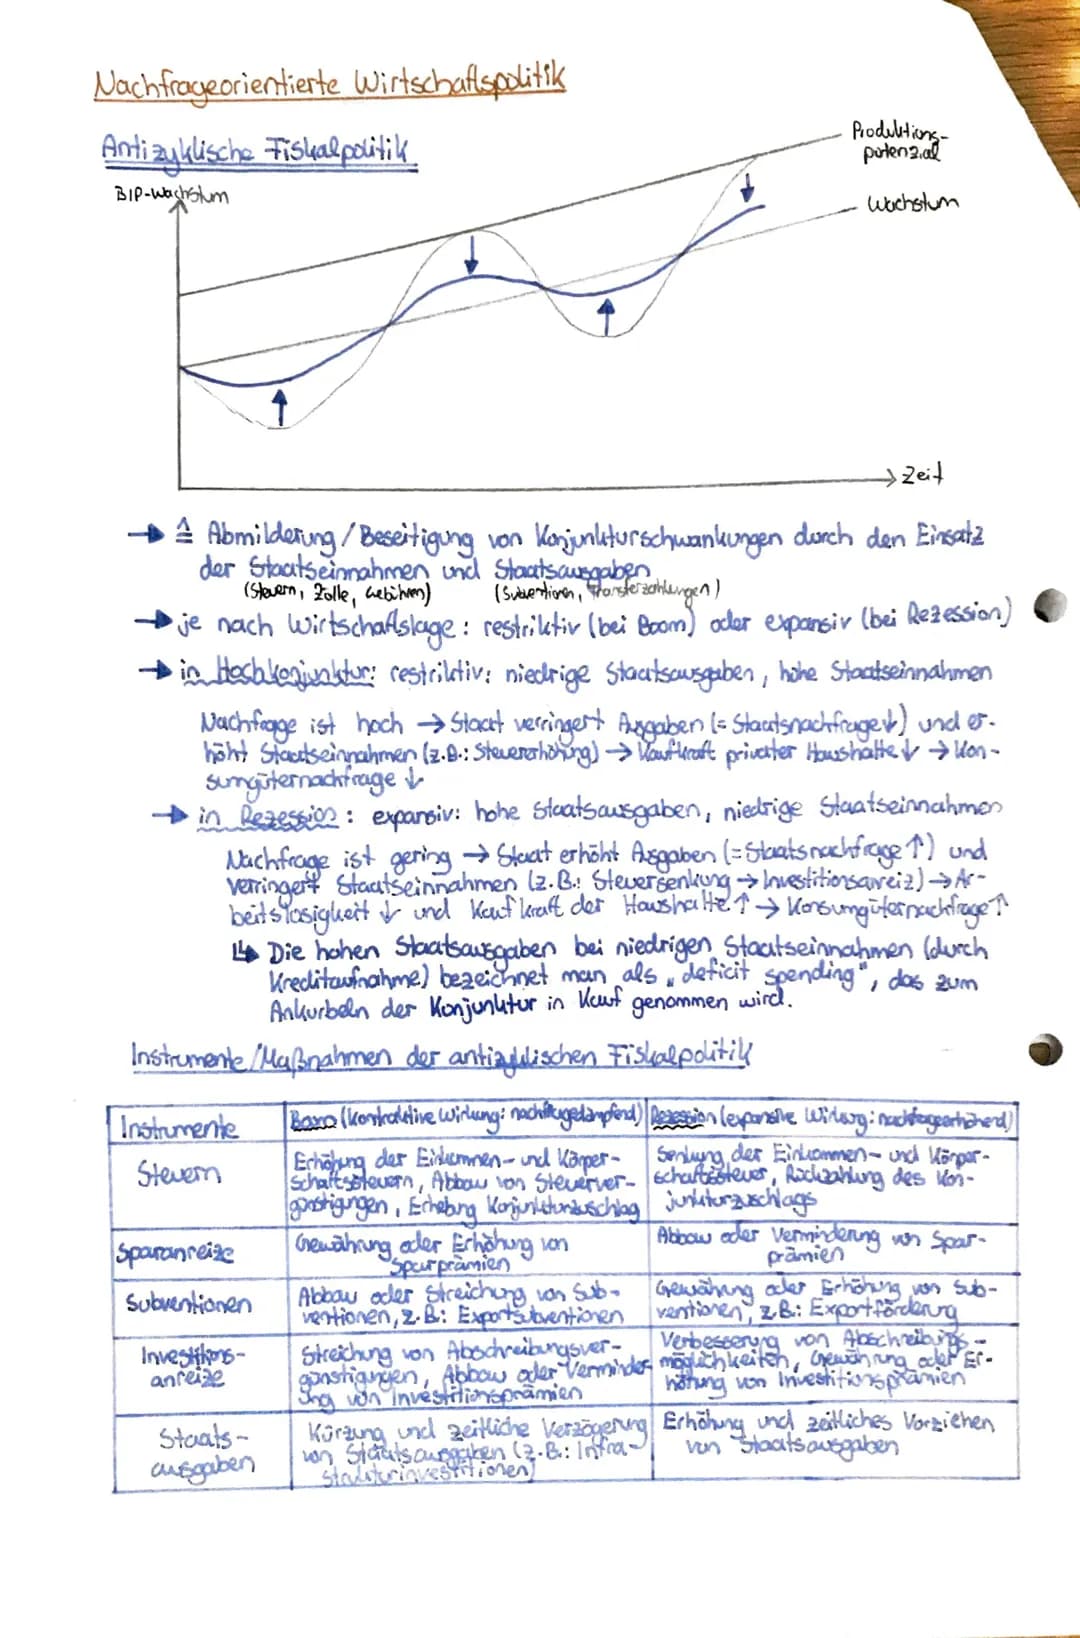 Nachfrageorientierte Wirtschaftspolitik
Antizyklische Fiskalpolitik
BIP-Wachstum
Produktions-
potenzial
Wachstum
Zeit
→ ≙ Abmilderung/Beseitigung von Konjunkturschwankungen durch den Einsatz
der Staatseinnahmen und Staatsausgaben
(Steuern, Zölle, Gebühren) (Subventionen, Transferzahlungen)
→ je nach Wirtschaftslage: restriktiv (bei Boom) oder expansiv (bei Rezession)
→ in Hochkonjunktur: restriktiv: niedrige Staatsausgaben, hohe Staatseinnahmen
Nachfrage ist hoch → Staat verringert Ausgaben (= Staatsnachfrage↓) und er-
höht Staatseinnahmen (z.B.: Steuererhöhung) → Kaufkraft privater Haushalte ↓ → Kon-
sumgüternachfrage ↓
→ in Rezession: expansiv: hohe Staatsausgaben, niedrige Staatseinnahmen
Nachfrage ist gering → Staat erhöht Ausgaben (= Staatsnachfrage ↑) und
verringert Staatseinnahmen (z.B.: Steuersenkung → Investitionsanreiz) → Ar-
beitslosigkeit ↓ und Kaufkraft der Haushalte ↑ → Konsumgüternachfrage ↑
↳ Die hohen Staatsausgaben bei niedrigen Staatseinnahmen (durch
Kreditaufnahme) bezeichnet man als „deficit spending", das zum
Ankurbeln der Konjunktur in Kauf genommen wird.
Instrumente/Maßnahmen der antizyklischen Fiskalpolitik
Instrumente
Boom (kontraktive Wirkung: nachfragedämpfend)
Rezession (expansive Wirkung: nachfrageerhöhend)
Steuern
Erhöhung der Einkommen- und Körper-
schaftssteuern, Abbau von Steuerver-
günstigungen, Erhebung Konjunkturzuschlag
Senkung der Einkommen- und Körper-
schaftssteuer, Rückzahlung des Kon-
junkturzuschlags
Sparanreize
Gewährung oder Erhöhung von
Sparprämien
Abbau oder Verminderung von Spar-
prämien
Subventionen
Abbau oder Streichung von Sub-
ventionen, z.B.: Exportsubventionen
Gewährung oder Erhöhung von Sub-
ventionen, z.B.: Exportförderung
Investitions-
anreize
Streichung von Abschreibungsver-
günstigungen, Abbau oder Verminder-
ung von Investitionsprämien
Verbesserung von Abschreibungs-
möglichkeiten, Gewährung oder Er-
höhung von Investitionsprämien
Staats-
ausgaben
Kürzung und zeitliche Verzögerung
von Staatsausgaben (z.B.: Infra-
strukturinvestitionen)
Erhöhung und zeitliches Vorziehen
von Staatsausgaben